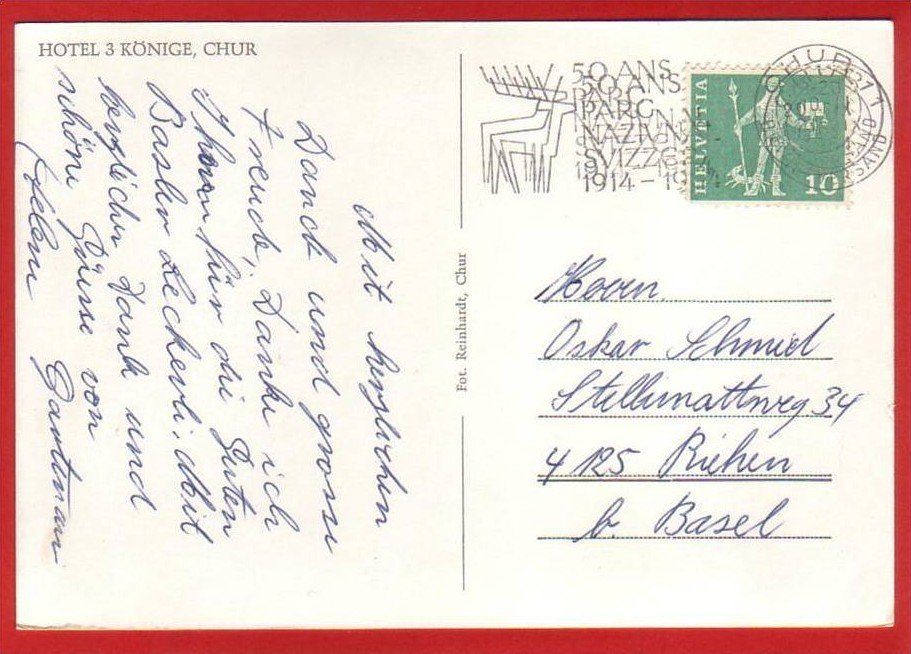 HOTEL 3 KÖNIGE, CHUR
Mit herzlichen
Dank und grosse
Freude, Danke ich
Ihnen für die Guten
Basler Leckerli. Mit
herzlicher Dank und
schöne Grüsse von
Helene
Fot. Reinhardt, Chur
50 ANS
PARC
NAZIUNA
SVIZZE
1914 – 19
HELVETIA
10
CHUR 1
Herrn.
Oskar Schmid
Stellimattweg 34
4125 Riehen
b. Basel